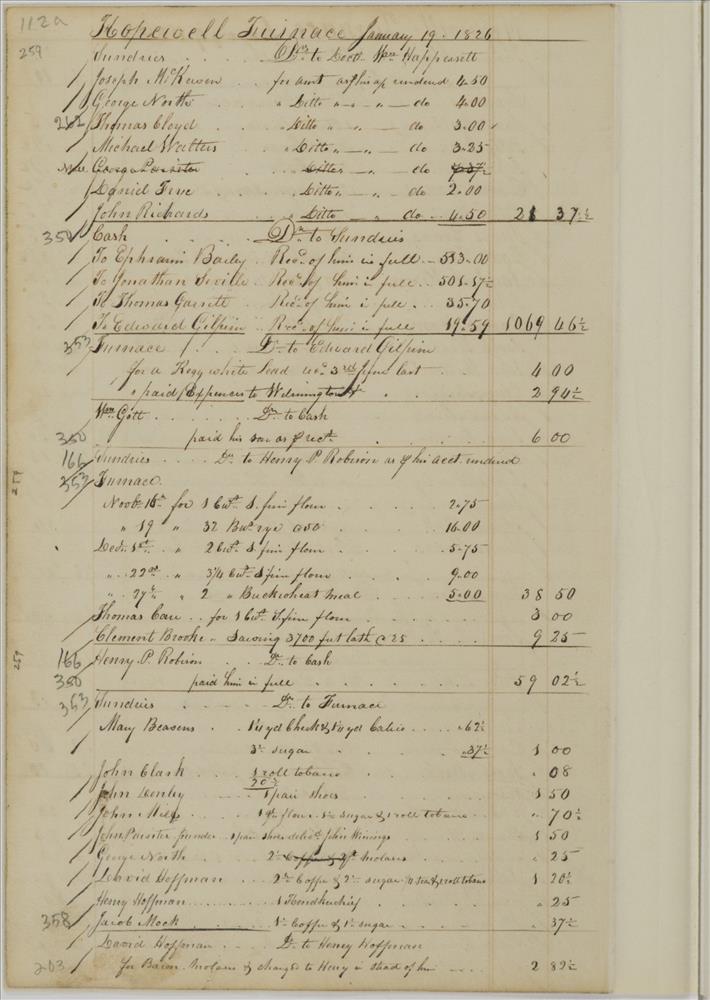 112a
Hopewell Furnace January 19. 1826
259 Sundries Drs to Doctr Wm Happersett
Joseph McKewen for amt as p his ap rendered 4.50
George North " Ditto " " do 4.00
262 Thomas Cloyd " Ditto " " do 3.00
Michael Watters " Ditto " " do 3.25
George Painter " Ditto " do
Daniel Fure " Ditto " " do 2.00
John Richards " Ditto " do 4.50 21 37½
350 Cash Dr to Sundries
To Ephraim Bailey Recd. of him in full 513.00
To Jonathan Seville Recd. of him in full 501.17½
To Thomas Garrett Recd. of him in full 35.70
To Edward Gilpin Recd. of him in full 19.59 1069 46½
353 Furnace Dr to Edward Gilpin
for a Keg white Lead 3rd June last 4 00
" paid Expences to Wilmington 2 94½
Wm Gott Dr to Cash
350 paid his son as p rect. 6 00
166 Sundries Dr to Henry P. Robison as p his acct. rendered
353 Furnace
Novbr 16th for 1 Cwt. S. fine flour 2.75
" 19 " 32 Bus. rye @50 16.00
Decr. 1st. " 2 Cwt. S. fine flour 5.75
" 22nd " 3¼ Cwt S fine flour 9.00
" 27th " 2 " Buckwheat meal 5.00 38 50
Thomas Care for 1 Cwt. S. fine flour 3 00
Clement Brooke " Sawing 3700 feet lath @ 25 9 25
259
166 Henry P. Robison Dr. to Cash
350 paid him in full 59 02½
353 Sundries Dr. to Furnace
Mary Beasons 1¼ yd Check & 1¼ yd Calico .62½
3 lb sugar .37½ 1 00
John Clark 1 roll tobacco " 08
John Denly 1 pair shoes 1 50
John 1 qr. flour sugar & 1 roll tobacco " 70½
John Painter founder 1 pair shoes delivd. John Winings 1 50
George North molasses " 25
David Hoffman 2 lb Coffee & 2 lb sugar & 1 roll tobacco 1 20½
Henry Hoffman 1 Handkerchief " 25
358 Jacob Mock 1 lb Coffee & 1 lb sugar " 37½
David Hoffman Dr. to Henry Hoffman
203 for Bacon Molasses & charged to Henry in stead of him 2 82½